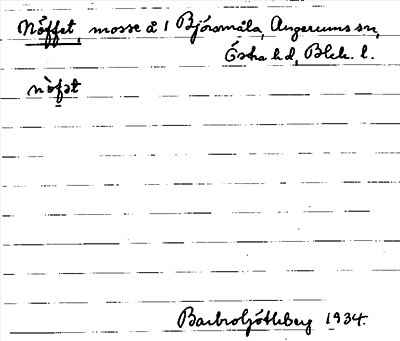 Nöffet, mosse å 1 Björsmåla, Augerums sn,
Östra hd, Blek. l.
nòfət
Barbro Götheberg 1934.